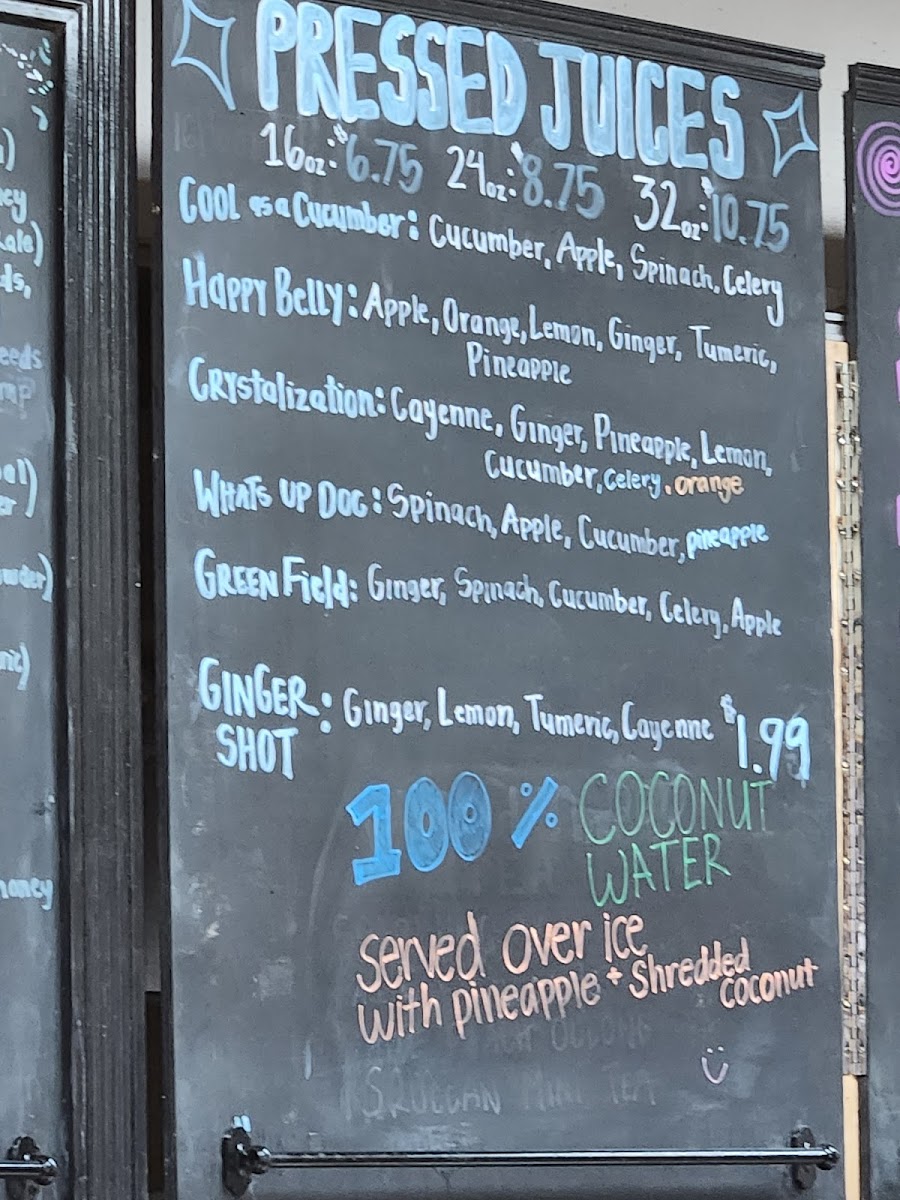 PRESSED JUICES
16oz: $6.75 24oz: $8.75 32oz: $10.75
COOL as a Cucumber: Cucumber, Apple, Spinach, Celery
Happy Belly: Apple, Orange, Lemon, Ginger, Tumeric,
Pineapple
Crystalization: Cayenne, Ginger, Pineapple, Lemon,
Cucumber, Celery, orange
WHATS UP DOG: Spinach, Apple, Cucumber, pineapple
GREEN Field: Ginger, Spinach, Cucumber, Celery, Apple
GINGER SHOT: Ginger, Lemon, Tumeric, Cayenne $1.99
100% COCONUT
WATER
Served over ice
with pineapple + Shredded
coconut
eeds
honey